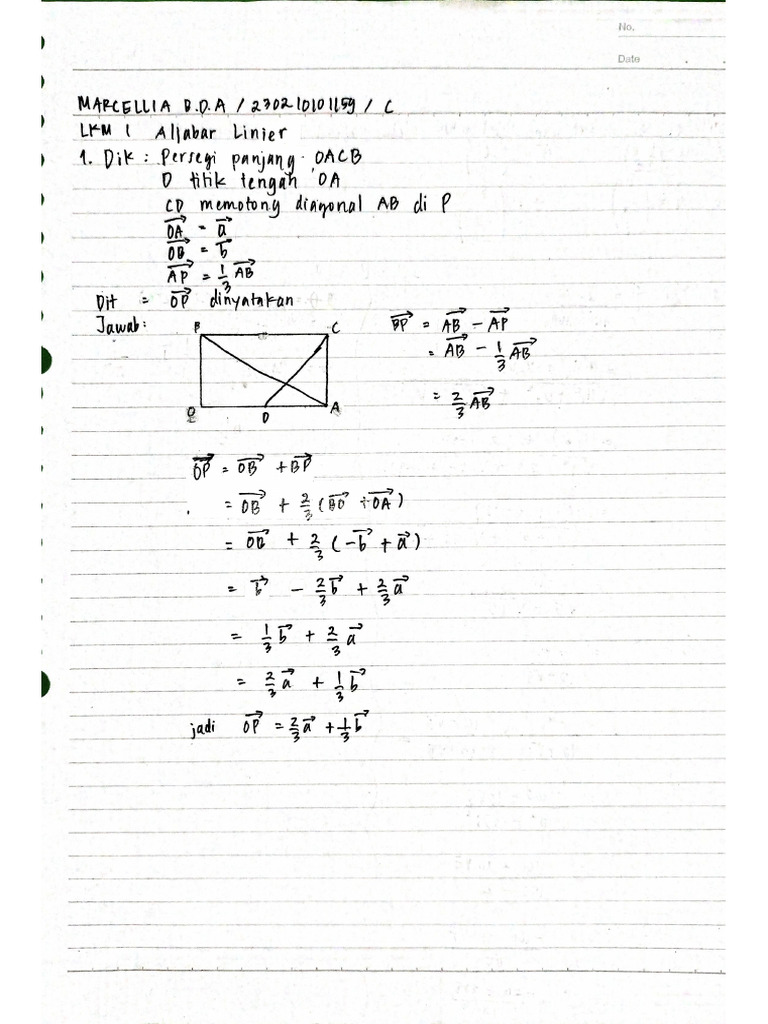 No.
Date
MARCELLIA B.D.A / 230210101159 / C
LKM 1 Aljabar Linier
1. Dik : Persegi panjang OACB
D titik tengah OA
CD memotong diagonal AB di P
OA⃗ = a⃗
OB⃗ = b⃗
AP⃗ = 1/3 AB⃗
Dit = OP⃗ dinyatakan
Jawab:
B C
O D A
BP⃗ = AB⃗ - AP⃗
= AB⃗ - 1/3 AB⃗
= 2/3 AB⃗
OP⃗ = OB⃗ + BP⃗
= OB⃗ + 2/3 (BO⃗ + OA⃗)
= OB⃗ + 2/3 (-b⃗ + a⃗)
= b⃗ - 2/3 b⃗ + 2/3 a⃗
= 1/3 b⃗ + 2/3 a⃗
= 2/3 a⃗ + 1/3 b⃗
jadi OP⃗ = 2/3 a⃗ + 1/3 b⃗